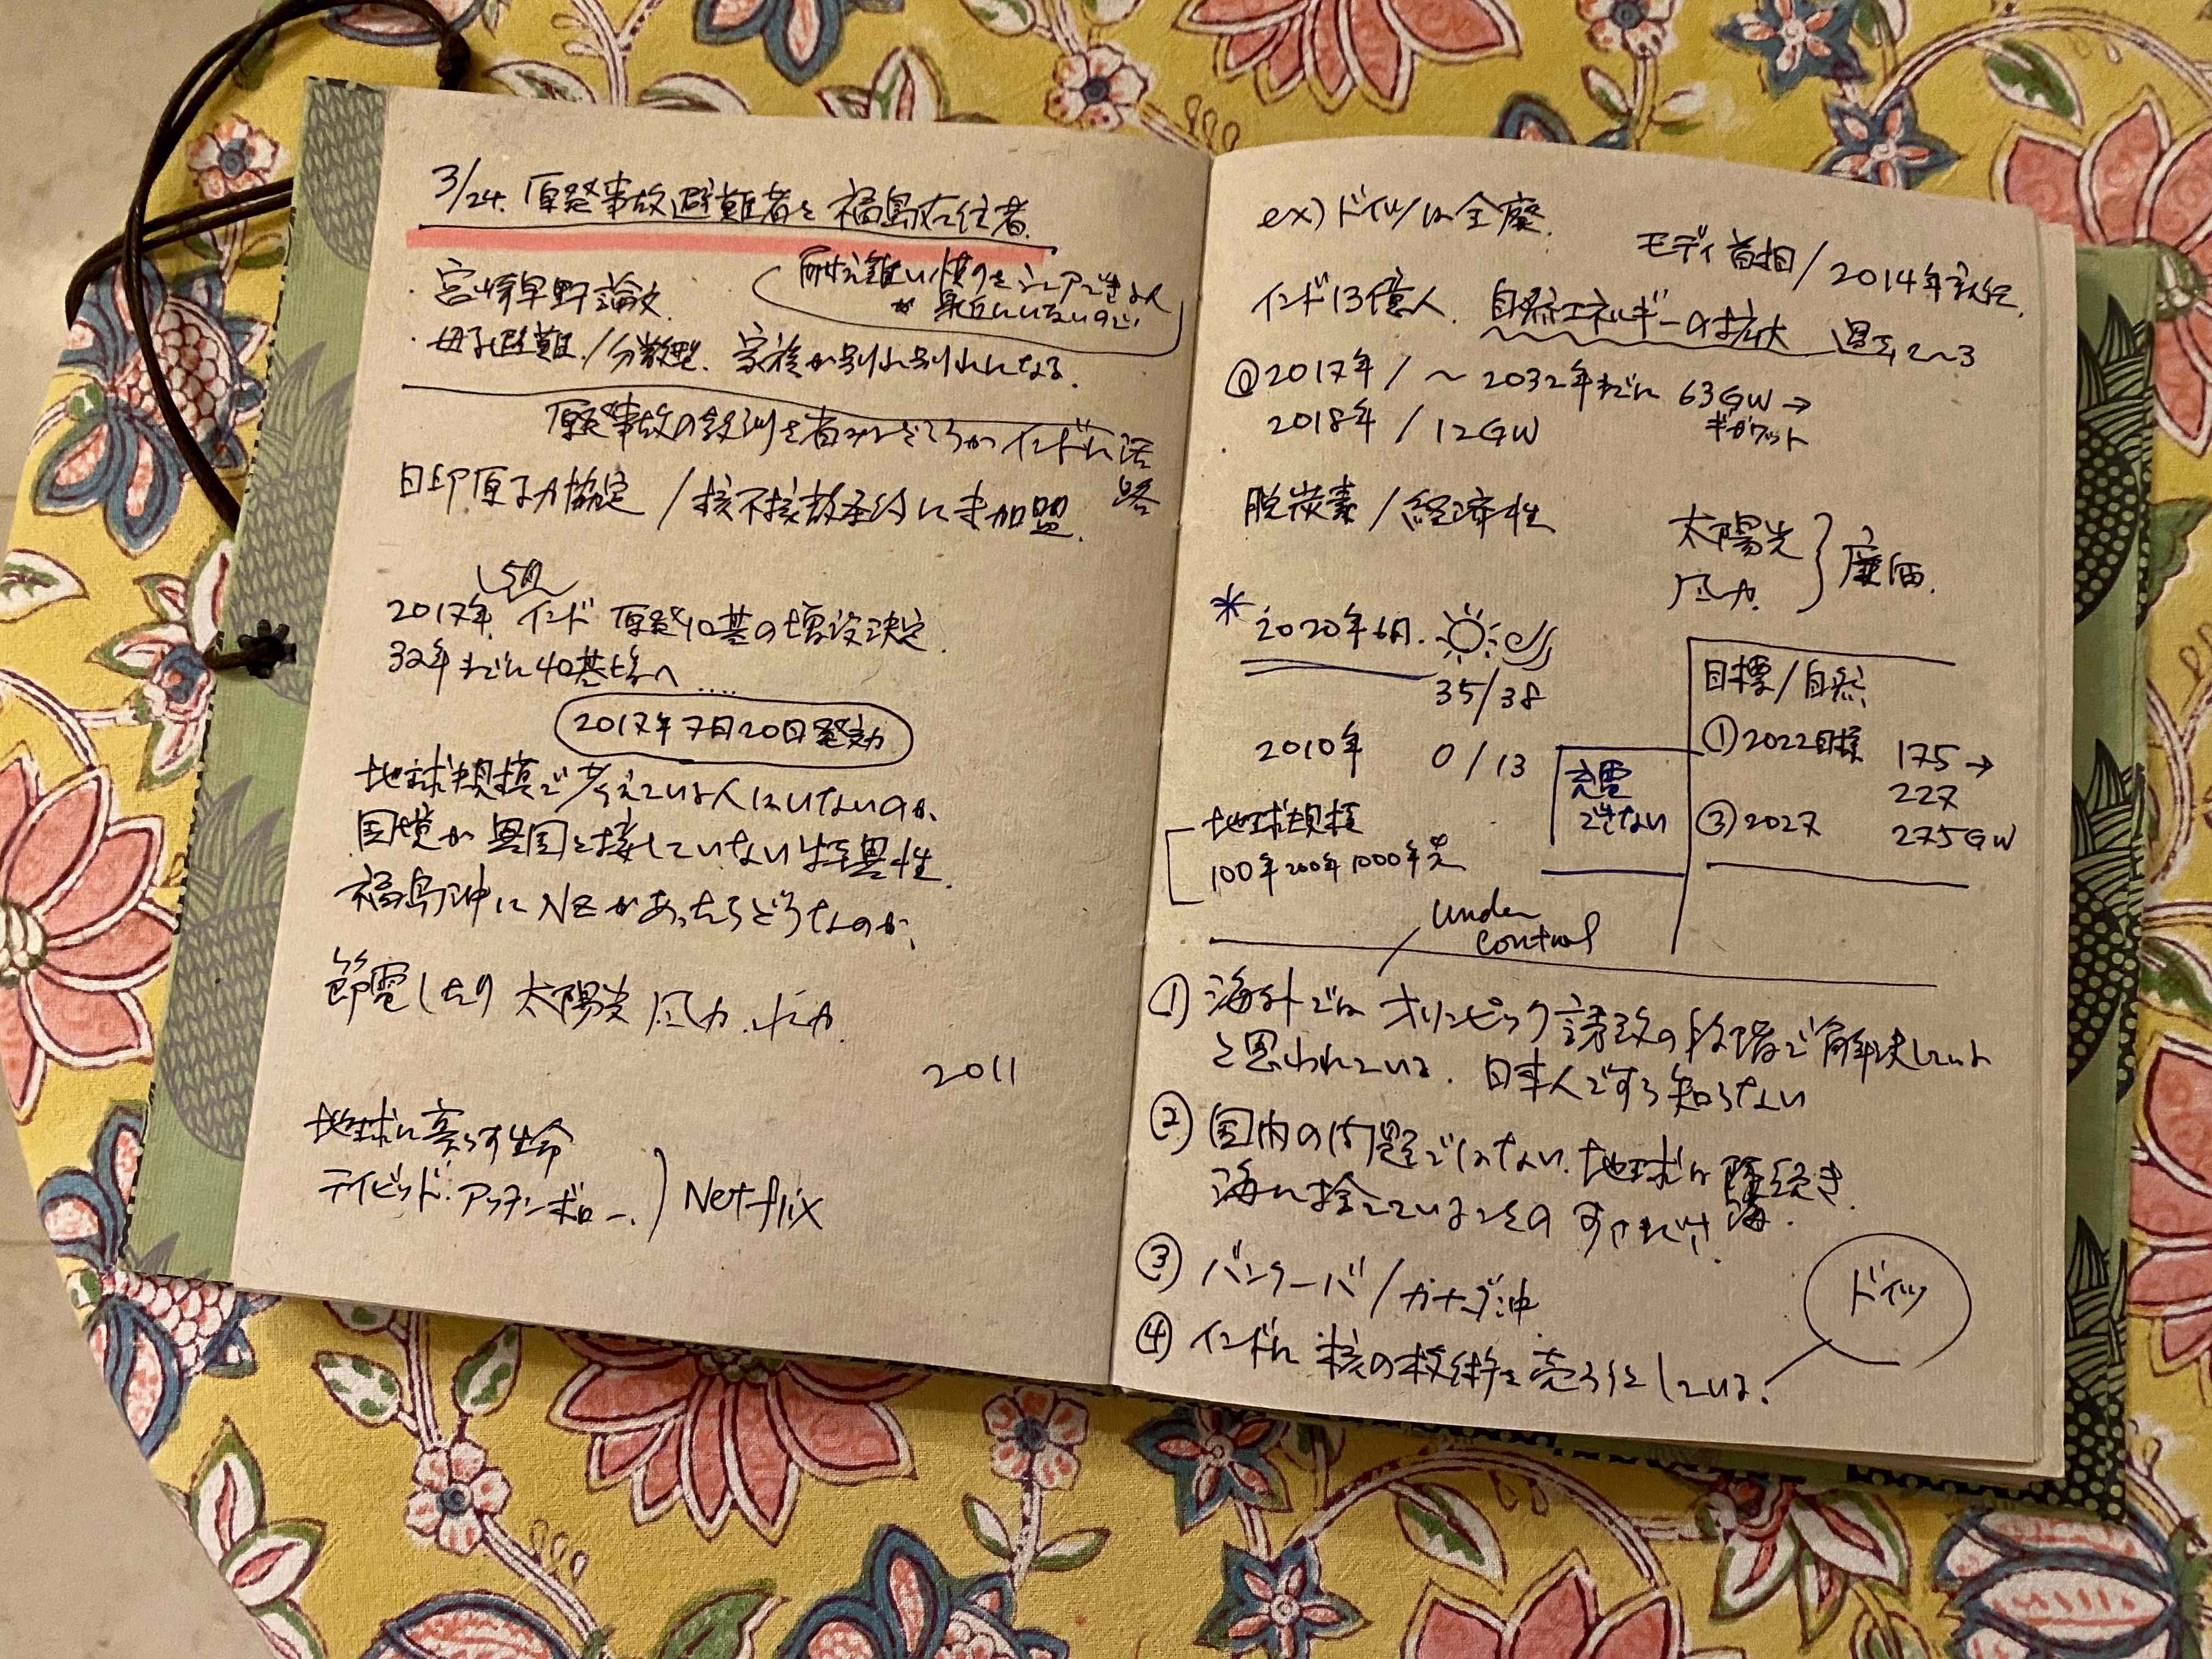 3/24. 原発事故避難者と福島在住者.
・宮崎早野論文.
耐え難い憤りをシェアできる人
が身近にいないので
・母子避難/分散型. 家族が別れ別れになる.
原発事故の教訓を省みるどころかインドに活路
日印原子力協定 /核不拡散条約に未加盟.
5月
2017年. インド 原発10基の増設決定.
32年までに40基増へ....
2017年7月20日発効
地球規模で考えている人はいないのか.
国境が異国と接していない特異性.
福島沖にNZがあったらどうなのか.
節電したり 太陽光 風力. 水力.
2011
地球に暮らす生命
デイビッド・アッテンボロー.
Netflix
ex) ドイツは全廃.
モディ首相/2014年就任.
インド13億人. 自然エネルギーの拡大 週5, 2〜3
2017年/〜2032年までに 63GW→
ギガワット
2018年 /12GW
脱炭素/経済性
太陽光
風力.
廉価.
* 2020年6月.
35/38
2010年 0/13
充電
できない
目標/自然
①2022目標 175→
227
③2027 275GW
地球規模
100年200年1000年先
under
control
① 海外では オリンピック誘致の段階で解決している
と思われている. 日本人ですら知らない
② 国内の問題ではない. 地球は陸続き.
海.
海に捨てていることの すさまじさ.
③ バンクーバ/カナダ沖
④ インドに 核の技術を売ろうとしている.
ドイツ